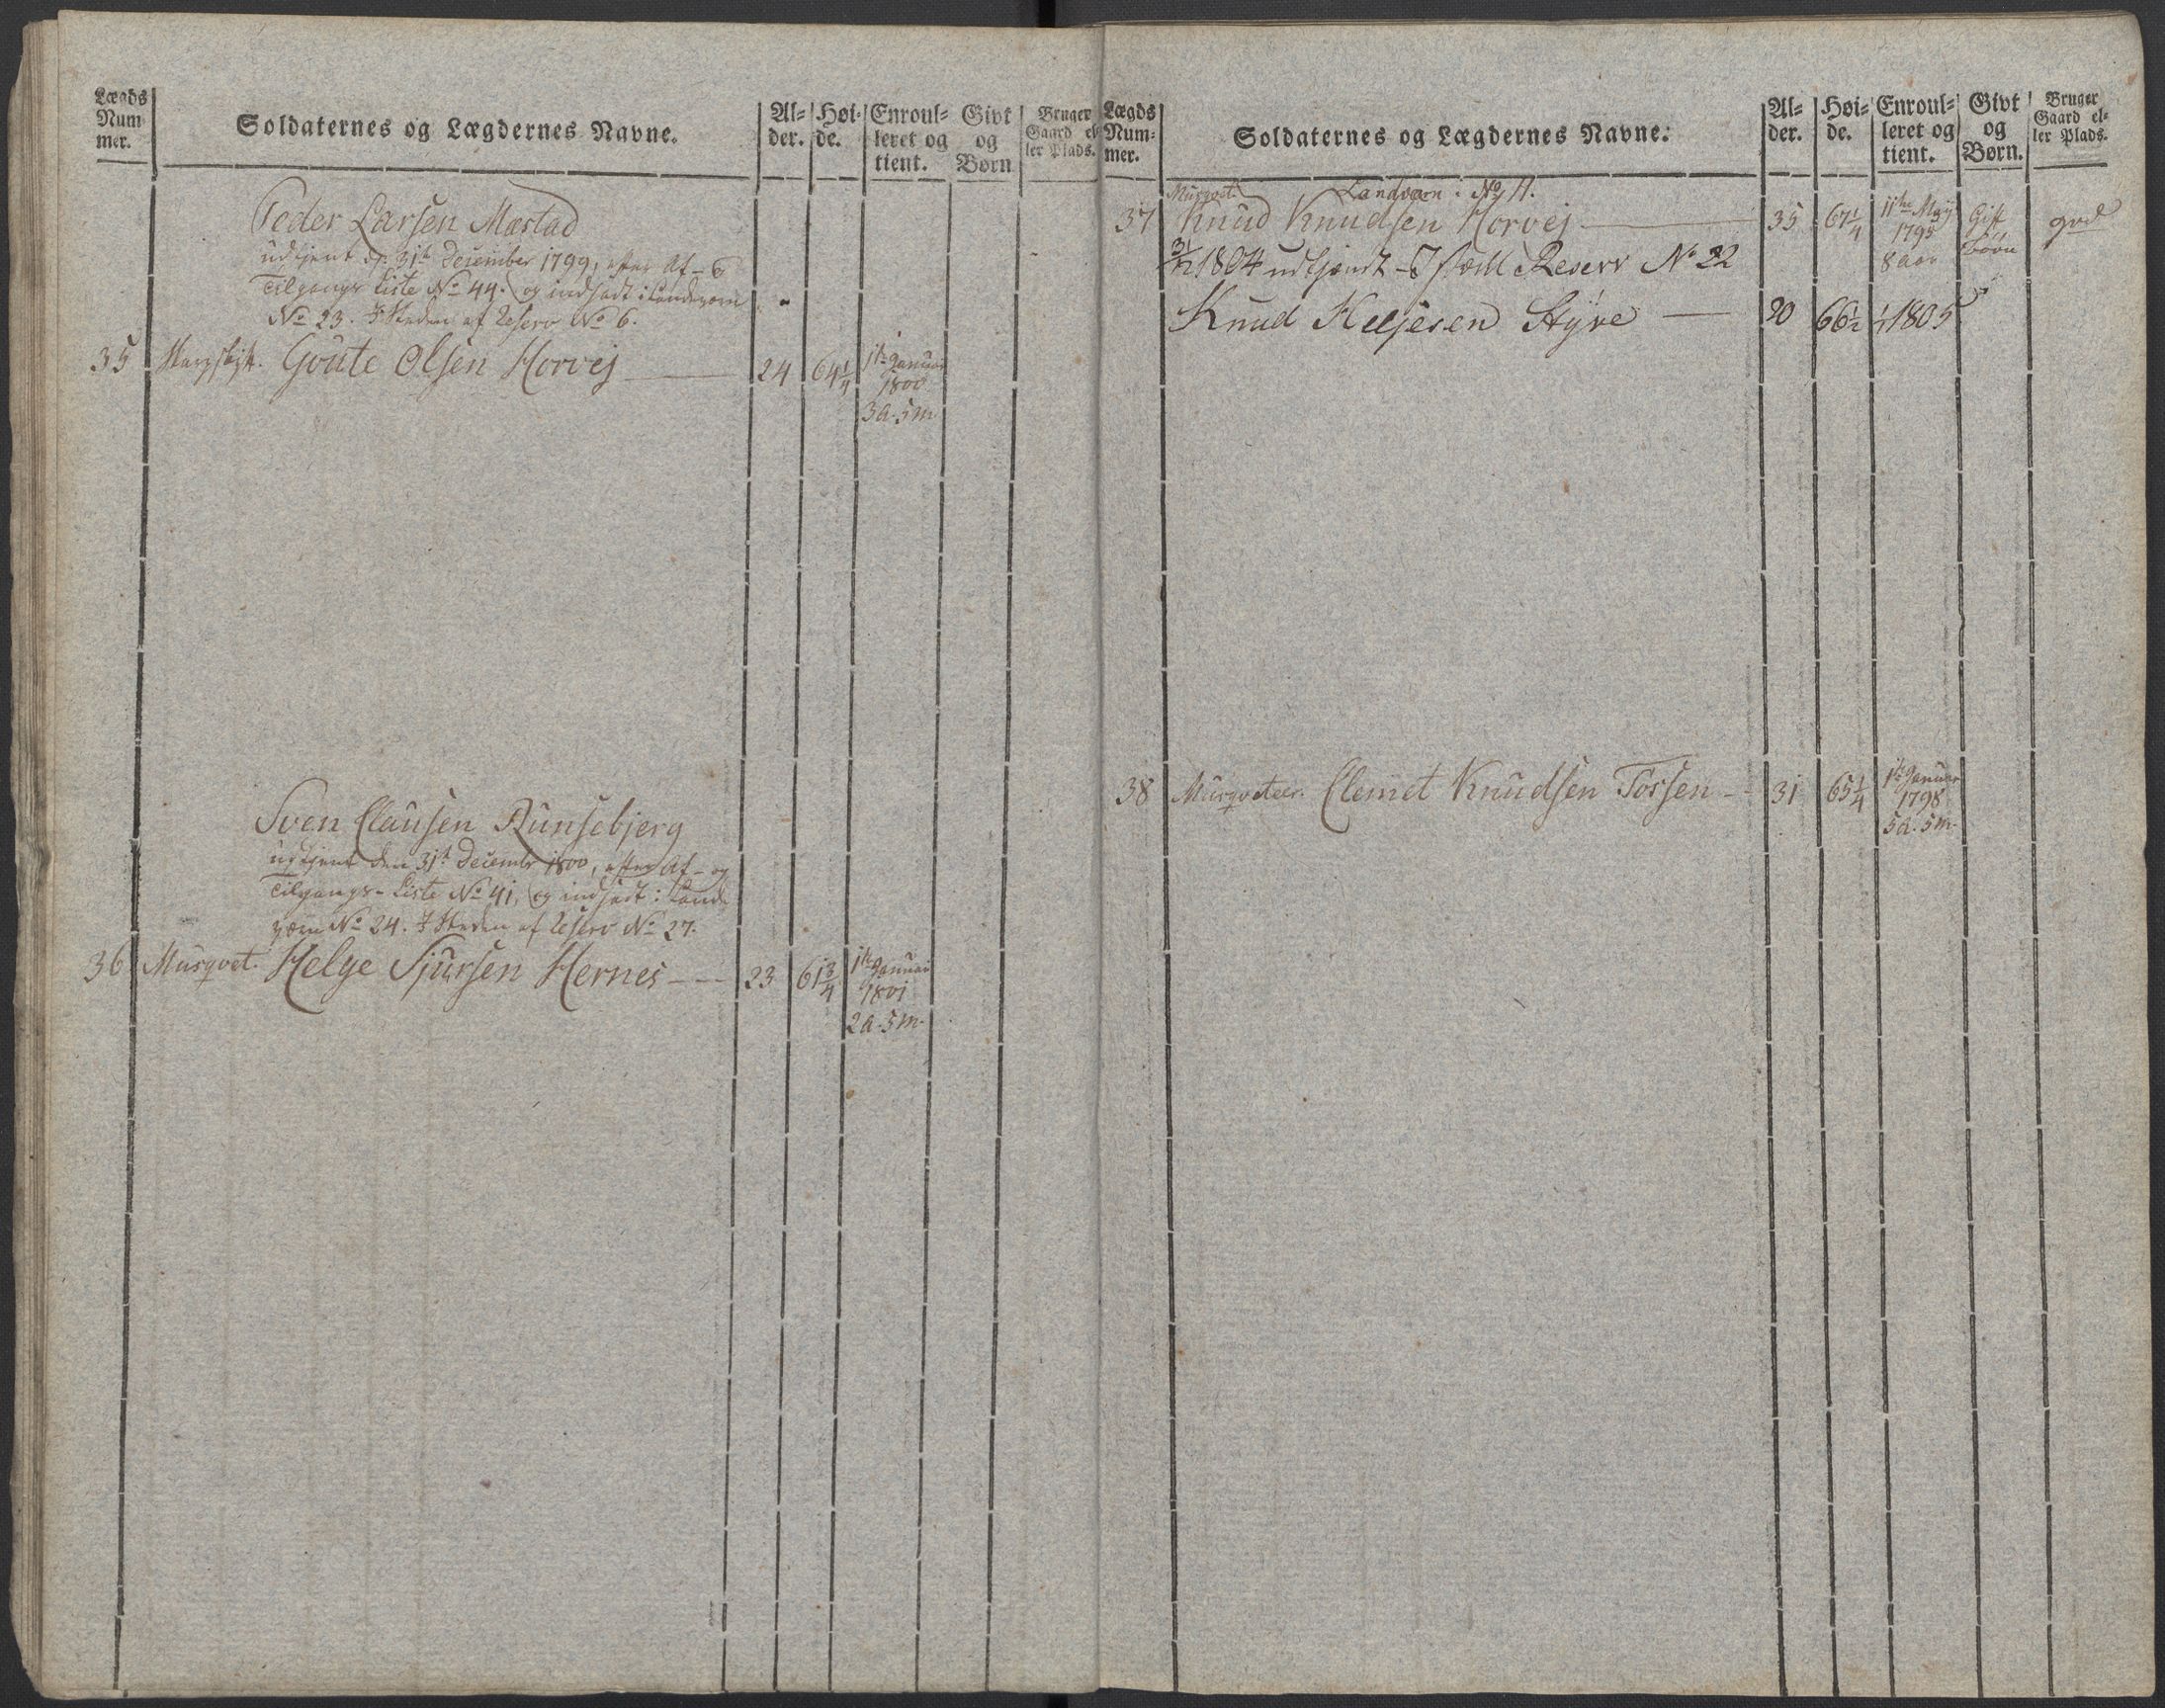 Lægds Num mer.
Soldaternes og Lægdernes Navne.
Al= der.
Høi= de.
Enroul= leret og tient.
Givt og Børn
Bruger Gaard el ler Plads.
Peder Larsen Mæstad
udtjent d. 31te December 1799, efter Af-
Tilgangs Liste No 44. og indsadt i Landeværn
No 23. I Steden af Reserv No 6.
35 Skarpskytt. Goute Olsen Horvej 24 64 1/4 1te Januar
1800
3 a. 5 m.
Sven Clausen Runsebjerg
udtjent den 31te Decembr 1800, efter Af- og
Tilgangs-Liste No 41, og indsadt i Land
værn No 24. I Steden af Reserv No 27.
36 Musqvet. Helge Sjursen Hernes 23 61 3/4 1te Januar
1801
2 a. 5 m.
Lægds Num= mer.
Soldaternes og Lægdernes Navne.
Al= der.
Høi= de.
Enroul= leret og tient.
Givt og Børn.
Bruger Gaard el= ler Plads.
Musqvet. Landværn: No 11.
37 Knud Knudsen Horvej 35 67 1/4 11te May 1795 8 Aar Gift Børn
31/12 1804 udtjændt - I stæd Reserv No 22
Knud Helgesen Styve 20 66 1/2 1/1 1805
38 Musqveteer. Clemet Knudsen Tossen 31 65 1/4 1te Januar
1798
5 a. 5 m.